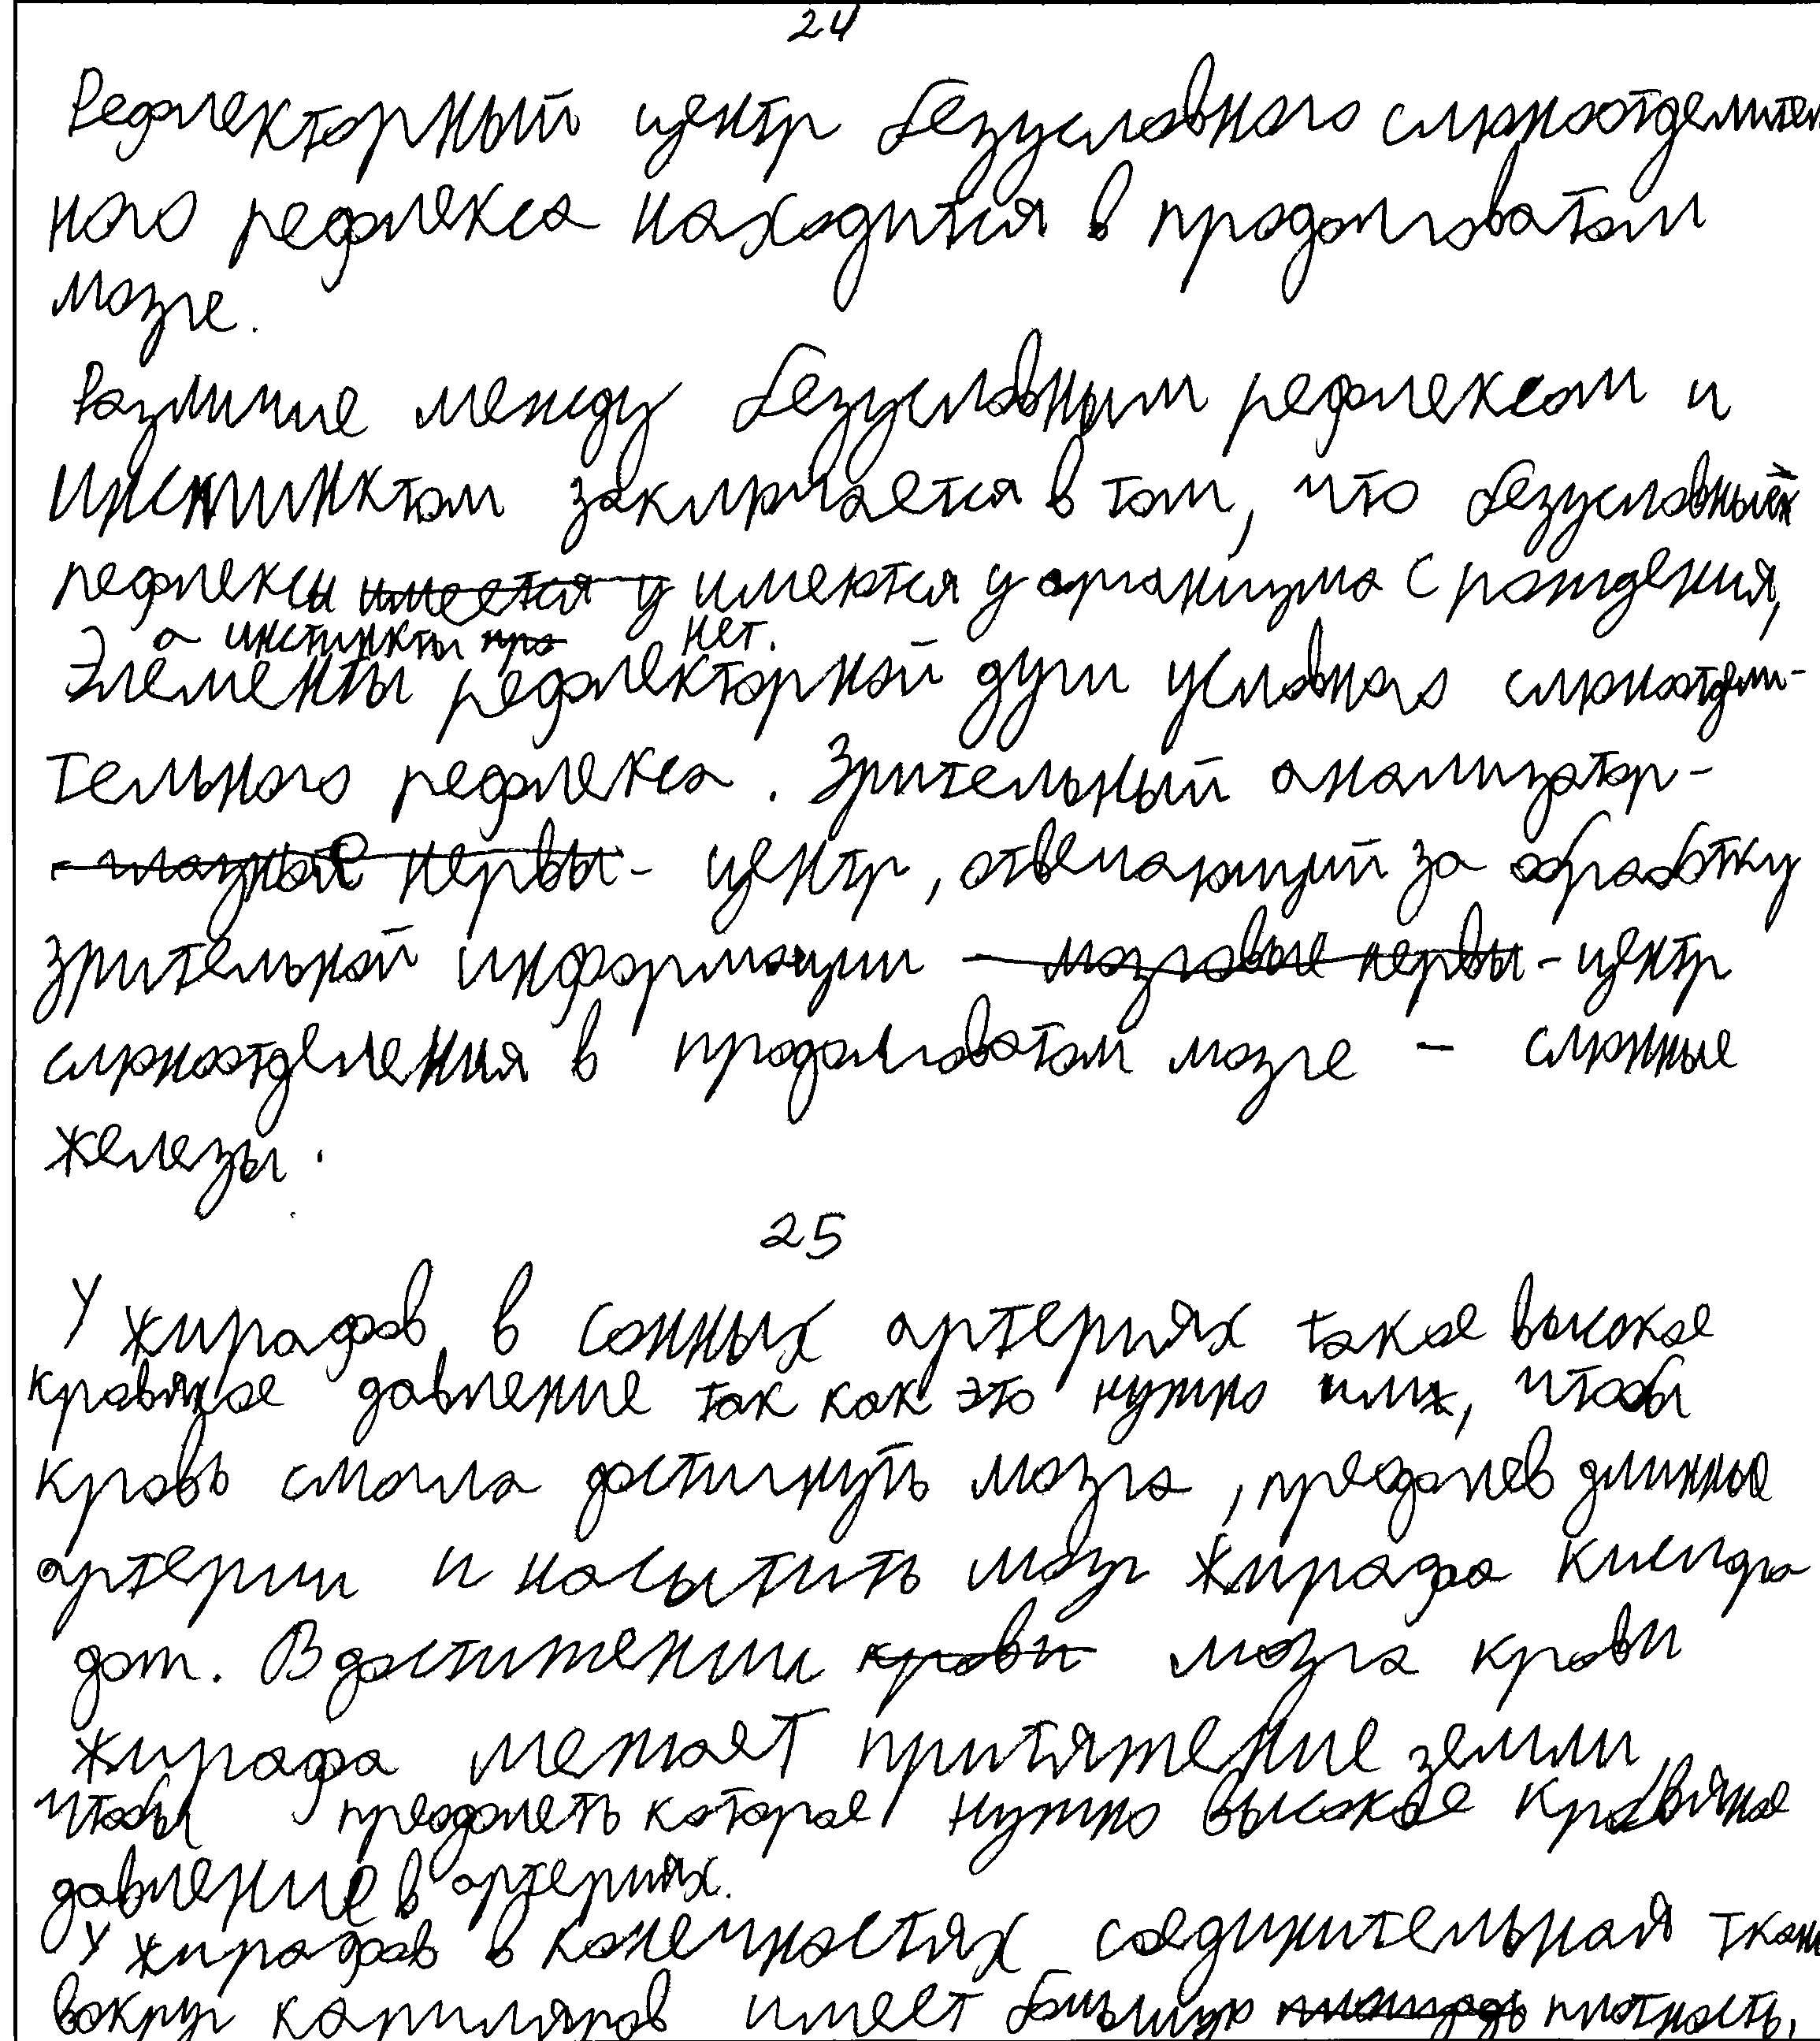 24
Рефлекторный центр безусловного слюноотделител
ного рефлекса находится в продолговатом
мозге.
Различие между безусловным рефлексом и
инстинктом заключается в том, что безусловные
рефлексы имеется у имеются у организма с рождения,
а инстинкты про нет.
Элементы рефлекторной дуги условного слюноотдели-
тельного рефлекса. Зрительный анализатор -
- глазные нервы - центр, отвечающий за обработку
зрительной информации - мозговые нервы - центр
слюноотделения в продолговатом мозге - слюнные
железы.
25
У жирафов в сонных артериях такое высокое
кровяное давление так как это нужно им, чтобы
кровь смогла достигнуть мозга, преодолев длинные
артерии и насытить мозг жирафа кислоро
дом. В достижении крови мозга крови
жирафа мешает притяжение земли,
чтобы преодолеть которое нужно высокое кровяное
давление в артериях.
У жирафов в конечностях соединительная ткань
вокруг капиляров имеет большую площадь плотность,